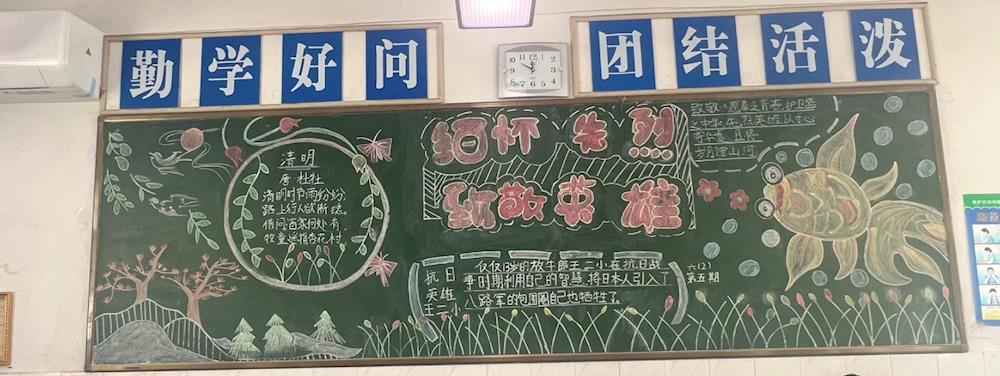 勤学好问
团结活泼
清明
唐 杜牡
清明时节雨纷纷,
路上行人欲断魂。
借问酒家何处有
牧童遥指杏花村
缅怀先烈
致敬英雄
抗日
英雄
王二小
仅仅13岁的放牛郎王二小在抗日战
争时期利用自己的智慧,将日本人引入了
八路军的包围圈自己也牺牲了。
六(2)
第五期
岁月
山河